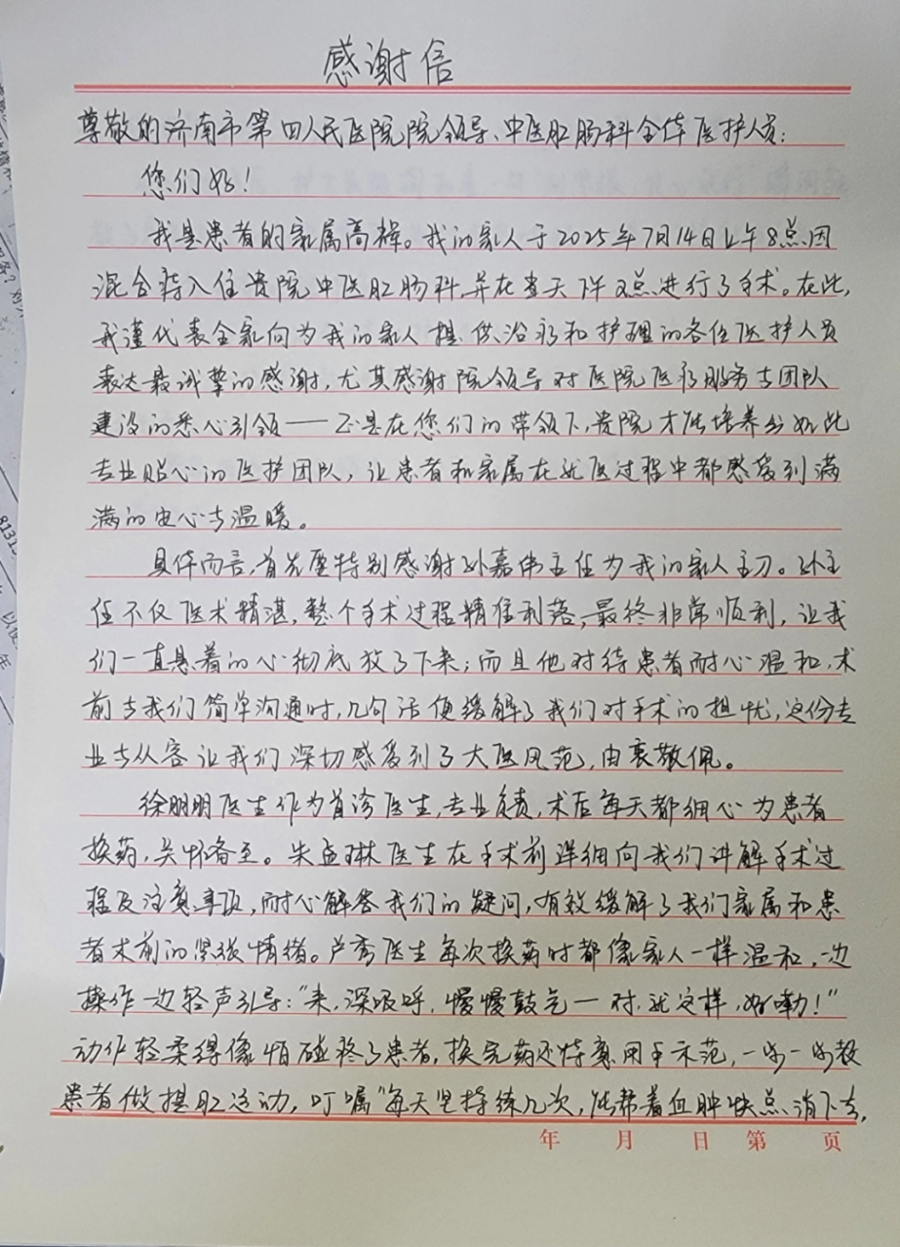 感谢信
尊敬的济南市第四人民医院院领导、中医肛肠科全体医护人员：
您们好！
我是患者的家属高辉。我的家人于2025年7月14日上午8点因
混合痔入住贵院中医肛肠科，并在当天下午2点进行了手术。在此，
我谨代表全家向为我的家人提供治疗和护理的各位医护人员
表达最诚挚的感谢，尤其感谢院领导对医院医疗服务与团队
建设的悉心引领——正是在您们的带领下，贵院才能培养出如此
专业贴心的医护团队，让患者和家属在就医过程中都感受到满
满的安心与温暖。
具体而言，首先要特别感谢孙嘉伟主任为我的家人主刀。孙主
任不仅医术精湛，整个手术过程精准利落，最终非常顺利，让我
们一直悬着的心彻底放了下来；而且他对待患者耐心温和，术
前与我们简单沟通时，几句话便缓解了我们对手术的担忧，这份专
业与从容让我们深切感受到了大医风范，由衷敬佩。
徐朋朋医生作为首诊医生，专业负责，术后每天都细心为患者
换药，关怀备至。朱孟琳医生在手术前详细向我们讲解手术过
程及注意事项，耐心解答我们的疑问，有效缓解了我们家属和患
者术前的紧张情绪。卢秀医生每次换药时都像家人一样温和，一边
操作一边轻声引导："来，深呼吸，慢慢鼓气一对，就这样，好嘞！"
动作轻柔得像怕碰疼了患者，换完药还特意用手示范，一步一步教
患者做提肛运动，叮嘱"每天坚持练几次，能帮着血肿快点消下去，
年 月 日 第 页